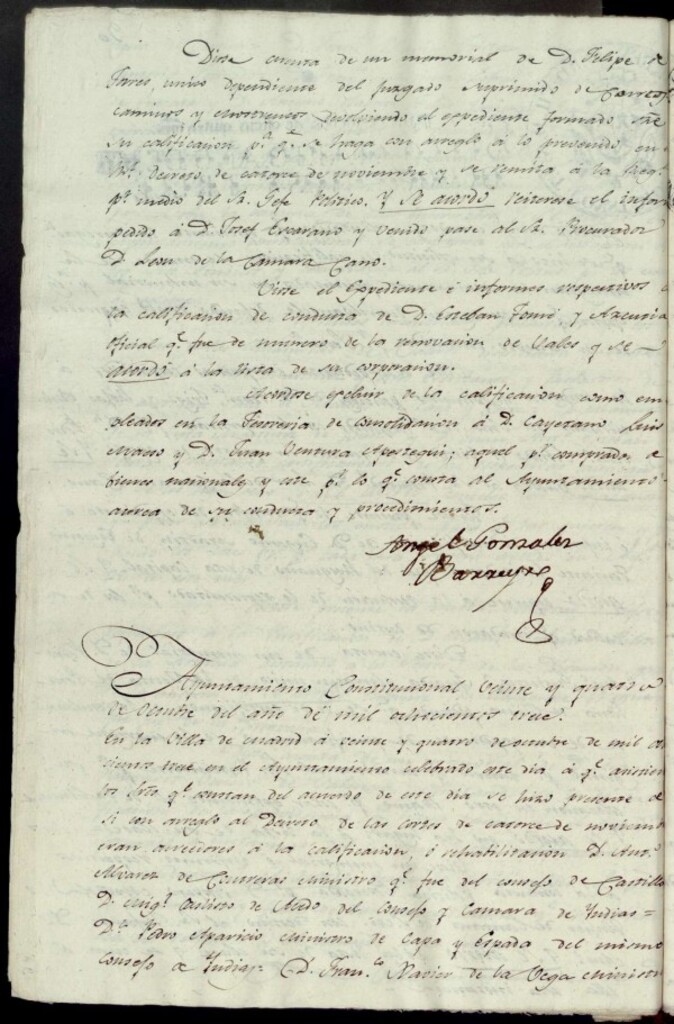 Diose cuenta de un memorial de D. Felipe de
Torres, unico dependiente del Juzgado suprimido de Correos
caminos y mostrencos devolviendo el expediente formado sre
su calificacion pa. qe. se haga con arreglo á lo prevenido en
Decreto de catorce de noviembre y se remita á la Reg.
pr. medio del Sr. Gefe Politico. Y se acordó reiterese el infor
pedido á D. Josef Escarano y venido pase al Sr. Procurador
D. Leon de la Camara Cano.
Viose el Expediente é informes respectivos á
la calificacion de conducta de D. Esteban Tomé y Azcutia
oficial qe. fue de numero de la renovacion de Vales y se
acordó á la lista de su corporacion.
Acordose excluir de la calificacion como em
pleados en la Tesoreria de consolidacion á D. Cayetano Luis
Maeso y D. Juan Ventura Aposteguí; aquel pr. comprador de
bienes nacionales y este pr. lo qe. consta al Ayuntamiento
acerca de su conducta y procedimientos.
Angel Gonzalez
Barreyro
Ayuntamiento Constitucional Veinte y quatro
de Octubre del año de mil ochocientos trece.
En la Villa de Madrid á veinte y quatro de octubre de mil ocho
cientos trece en el Ayuntamiento celebrado este dia á qe. asistien
los Srês qe. constan del acuerdo de este dia se hizo presente
si con arreglo al Decreto de las cortes de catorce de noviem
eran acreedores á la calificacion, ó rehabilitacion D. Anto.
Alvarez de Contreras Ministro qe. fue del consejo de Castilla
D. Migl. Calisto de Acedo del Consejo y Camara de Yndias =
Dn. Pedro Aparicio Ministro de Capa y Espada del mismo
Consejo de Yndias = D. Franco. Xavier de la Vega Ministro